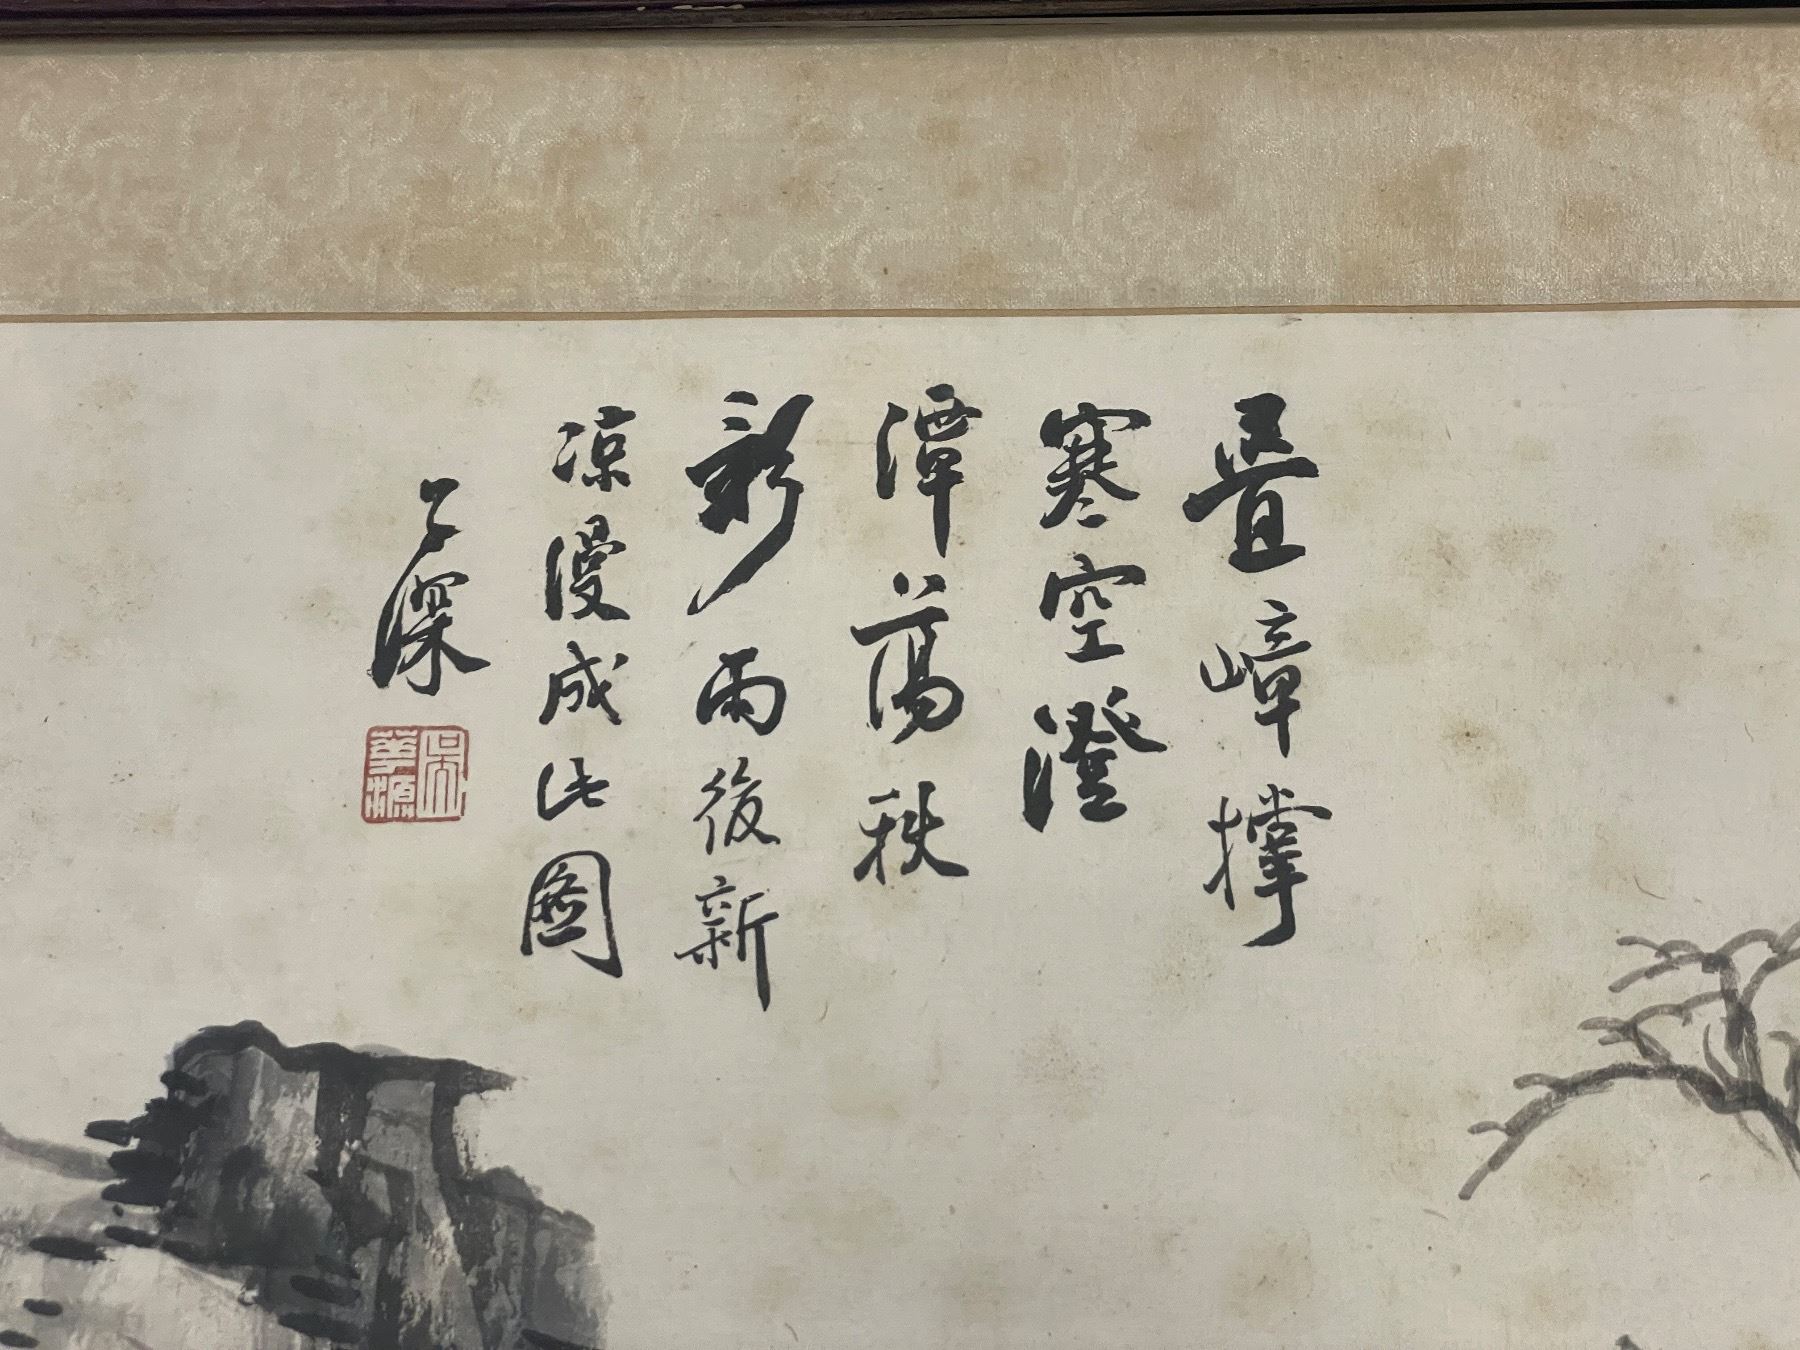 疊嶂撐
寒空澄
潭蕩秋
影雨後新
涼漫成此圖
子深
吳華源